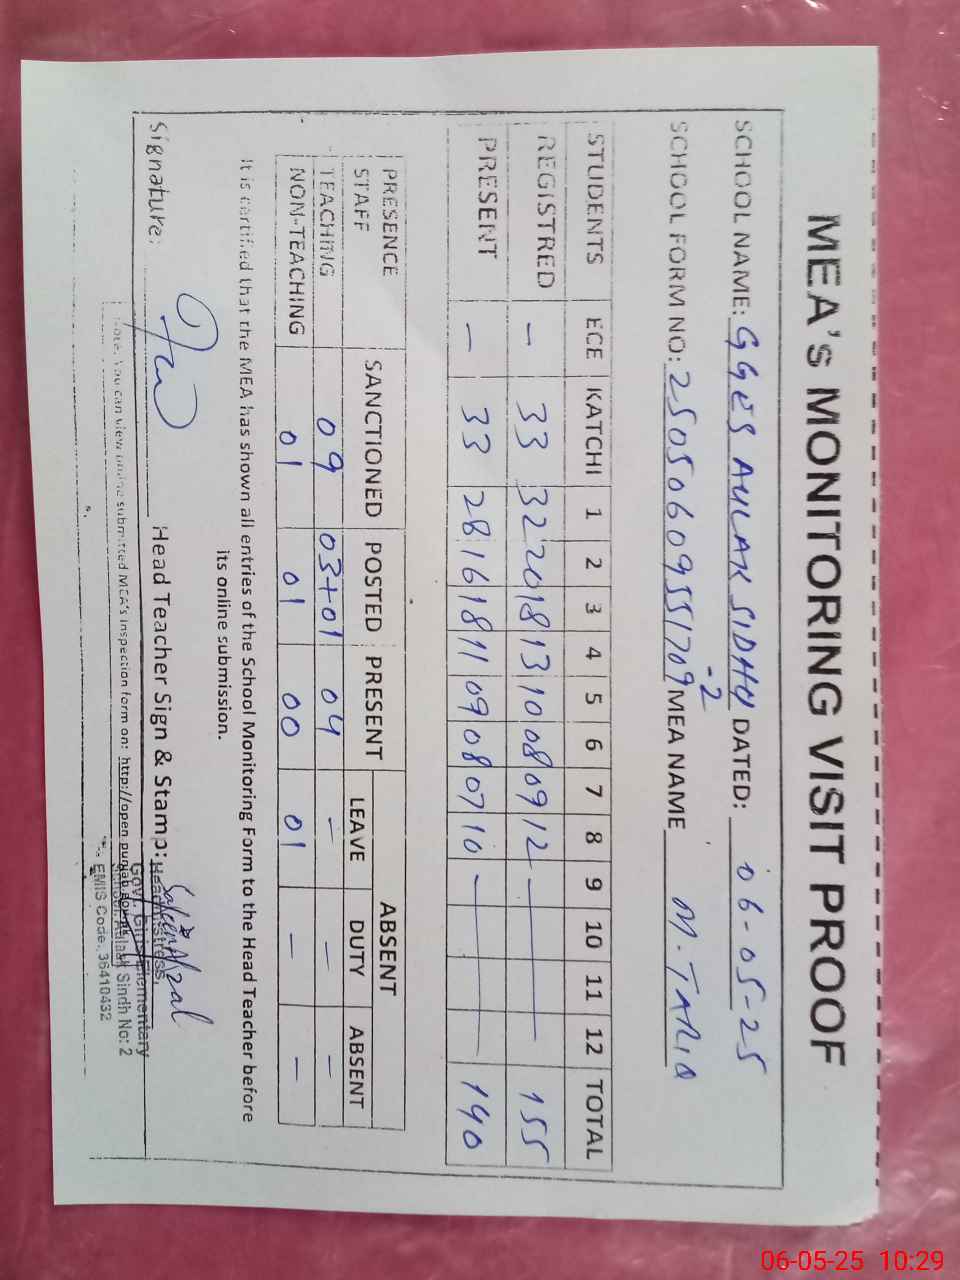 MEA's MONITORING VISIT PROOF
SCHOOL NAME: GGES AULAK SIDHU -2 DATED: 06-05-25
SCHOOL FORM NO: 25050609551709 MEA NAME M. TARIQ
STUDENTS ECE KATCHI 1 2 3 4 5 6 7 8 9 10 11 12 TOTAL
REGISTRED - 33 32 20 18 13 10 08 09 12 — 155
PRESENT - 33 28 16 18 11 09 08 07 10 — 140
PRESENCE STAFF SANCTIONED POSTED PRESENT ABSENT
LEAVE DUTY ABSENT
TEACHING 09 03+01 04 - - -
NON-TEACHING 01 01 00 01 - -
It is certified that the MEA has shown all entries of the School Monitoring Form to the Head Teacher before
its online submission.
Signature: Head Teacher Sign & Stamp:
Headmistress,
Govt. Girls Elementary
School, Aulakh Sindh No: 2
EMIS Code. 36410432
Note: You can view online submitted MEA's inspection form on: http://open.punjab.gov.pk
06-05-25 10:29